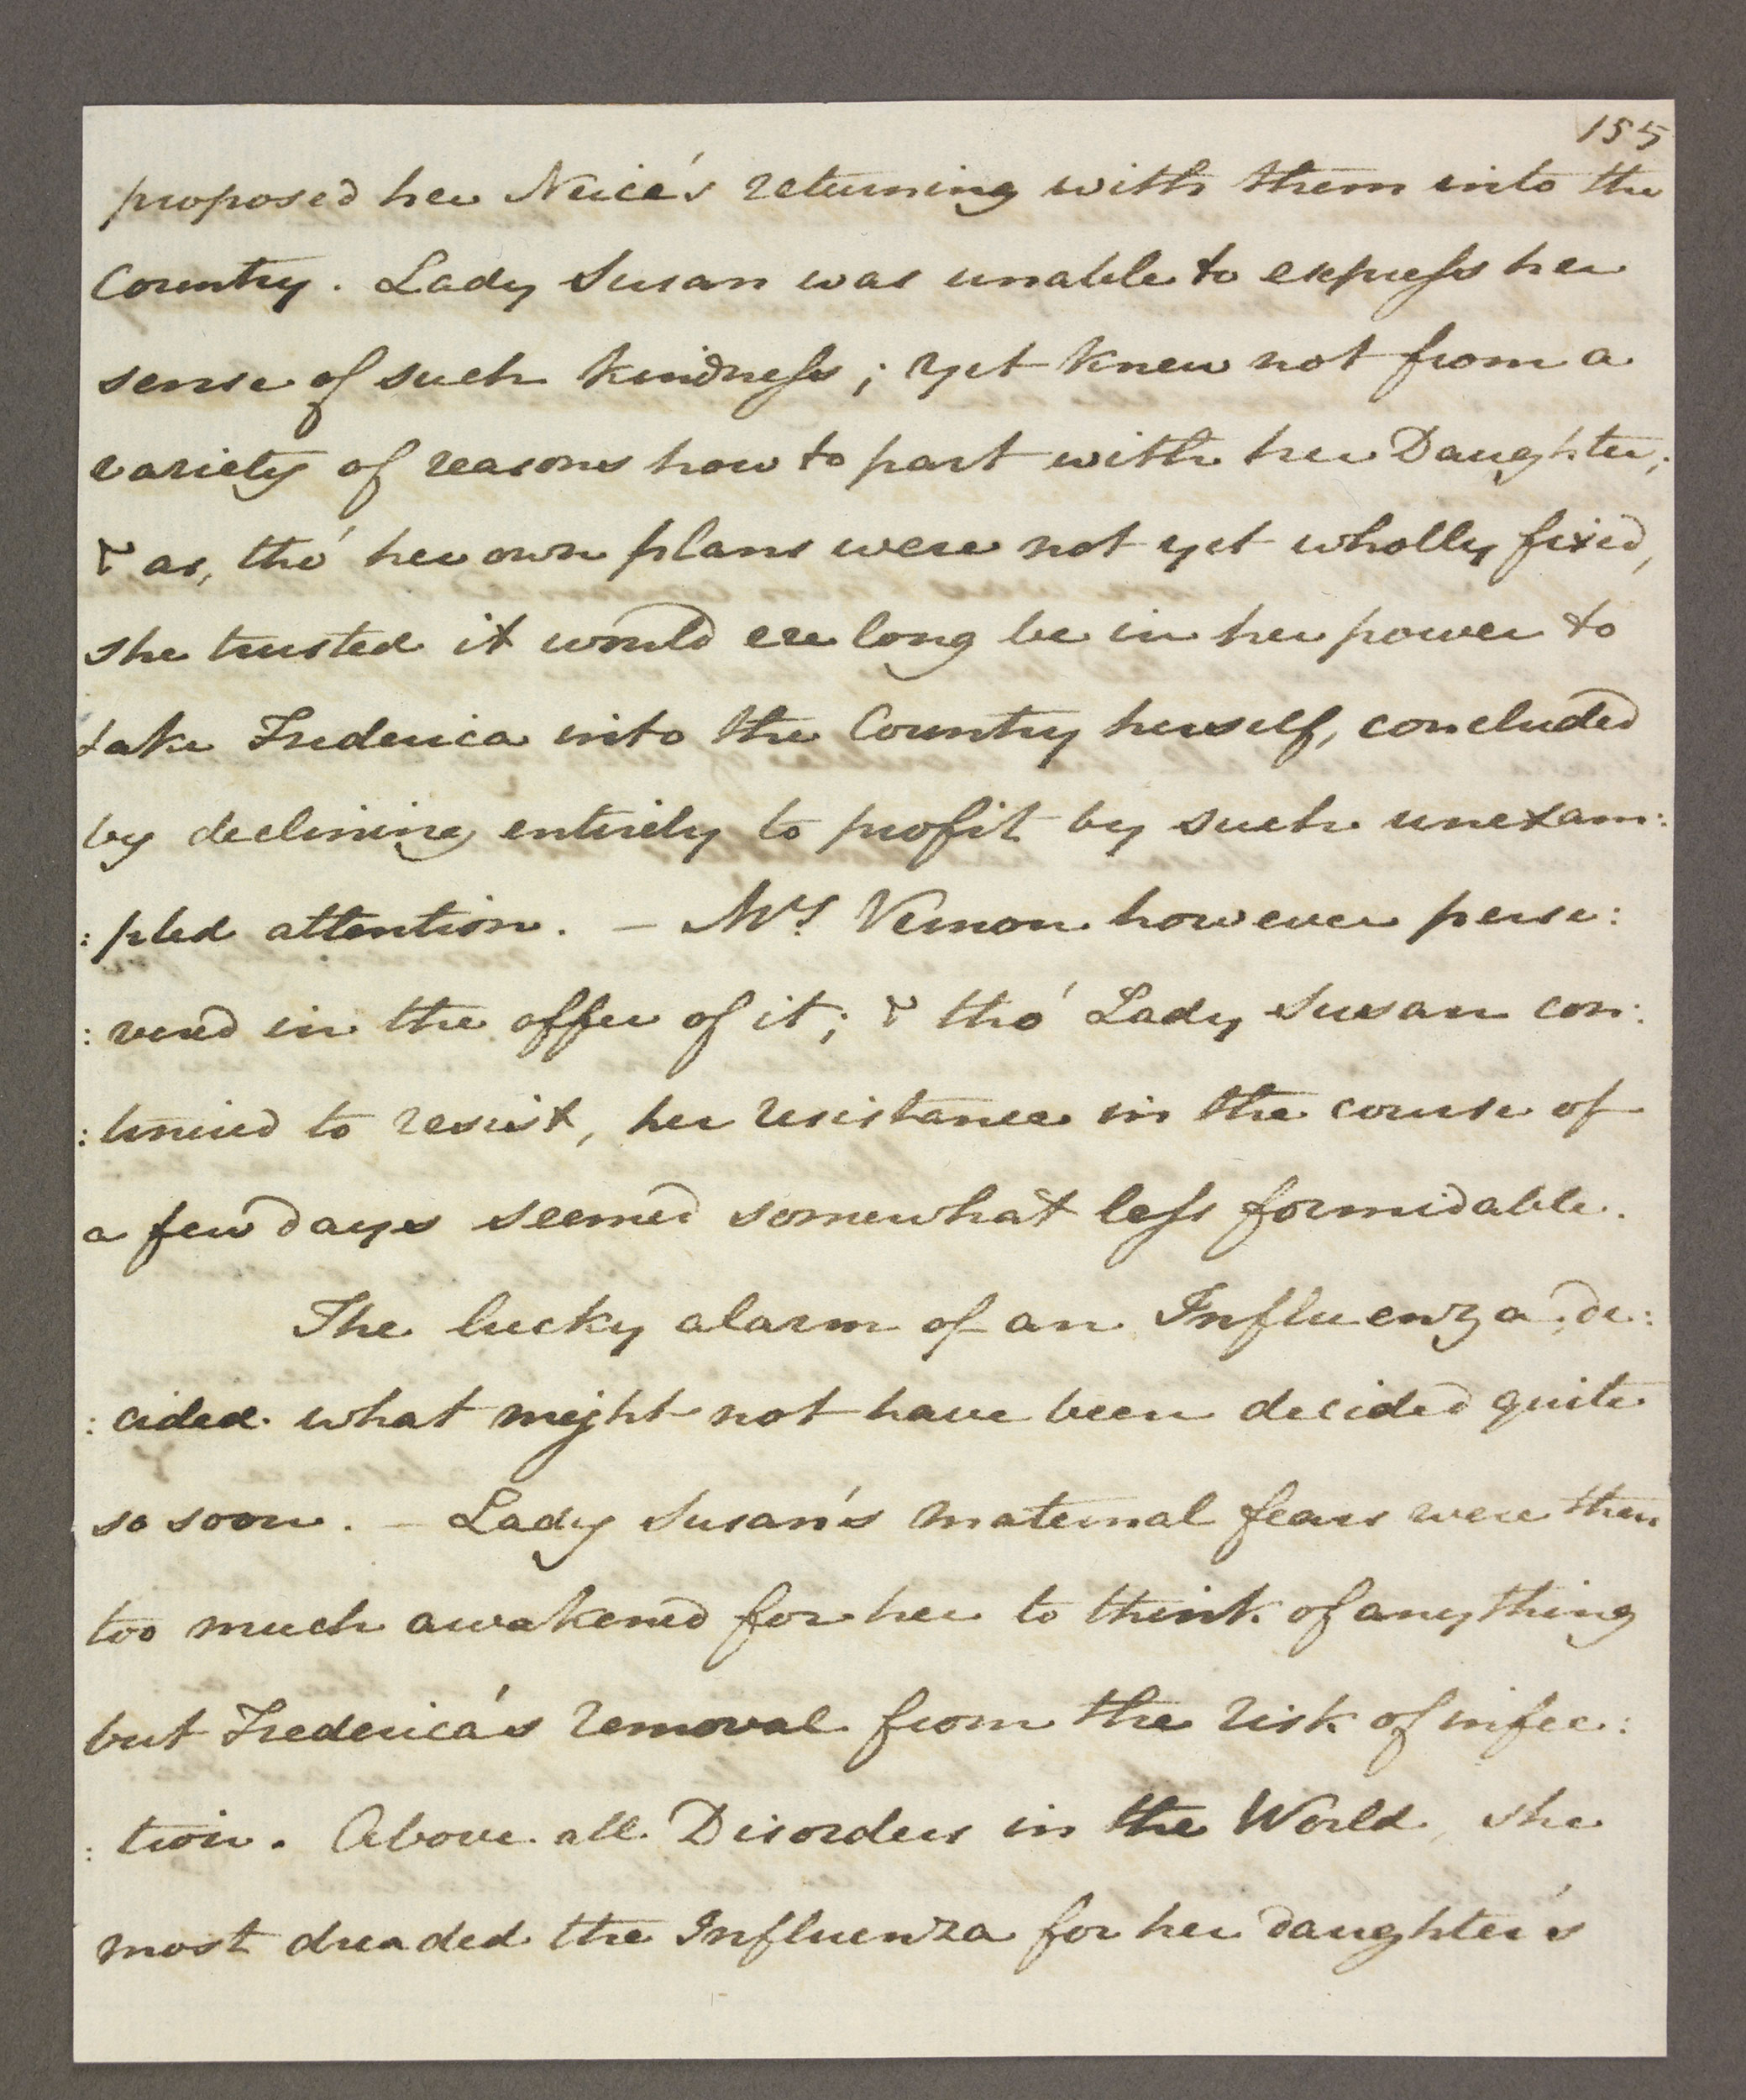 155
proposed her Neice's returning with them into the
Country. Lady Susan was unable to expreſs her
sense of such kindneſs; yet knew not from a
variety of reasons how to part with her Daughter;
& as, tho' her own plans were not yet wholly fixed,
she trusted it would ere long be in her power to
take Frederica into the Country herself, concluded
by declining entirely to profit by such unexam:
:pled attention. — Mrs. Vernon however perse:
:vered in the offer of it; & tho' Lady Susan con:
:tinued to resist, her resistance in the course of
a few days seemed somewhat leſs formidable.
The lucky alarm of an Influenza, de:
:cided what might not have been decided quite
so soon. — Lady Susan's maternal fears were then
too much awakened for her to think of anything
but Frederica's removal from the risk of infec:
:tion. Above all Disorders in the World, she
most dreaded the Influenza for her daughter's